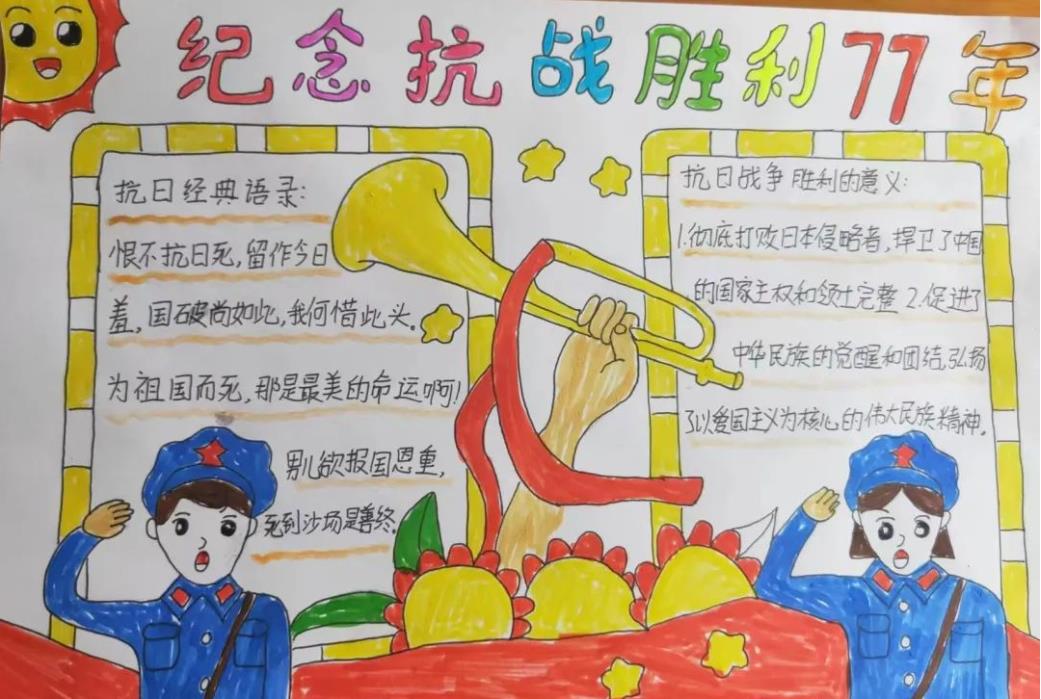 纪念抗战胜利77年
抗日经典语录:
恨不抗日死,留作今日
羞,国破尚如此,我何惜此头。
为祖国而死,那是最美的命运啊!
男儿欲报国恩重,
死到沙场是善终.
抗日战争胜利的意义:
1.彻底打败日本侵略者,捍卫了中国
的国家主权和领土完整 2.促进了
中华民族的觉醒和团结,弘扬
了以爱国主义为核心的伟大民族精神。